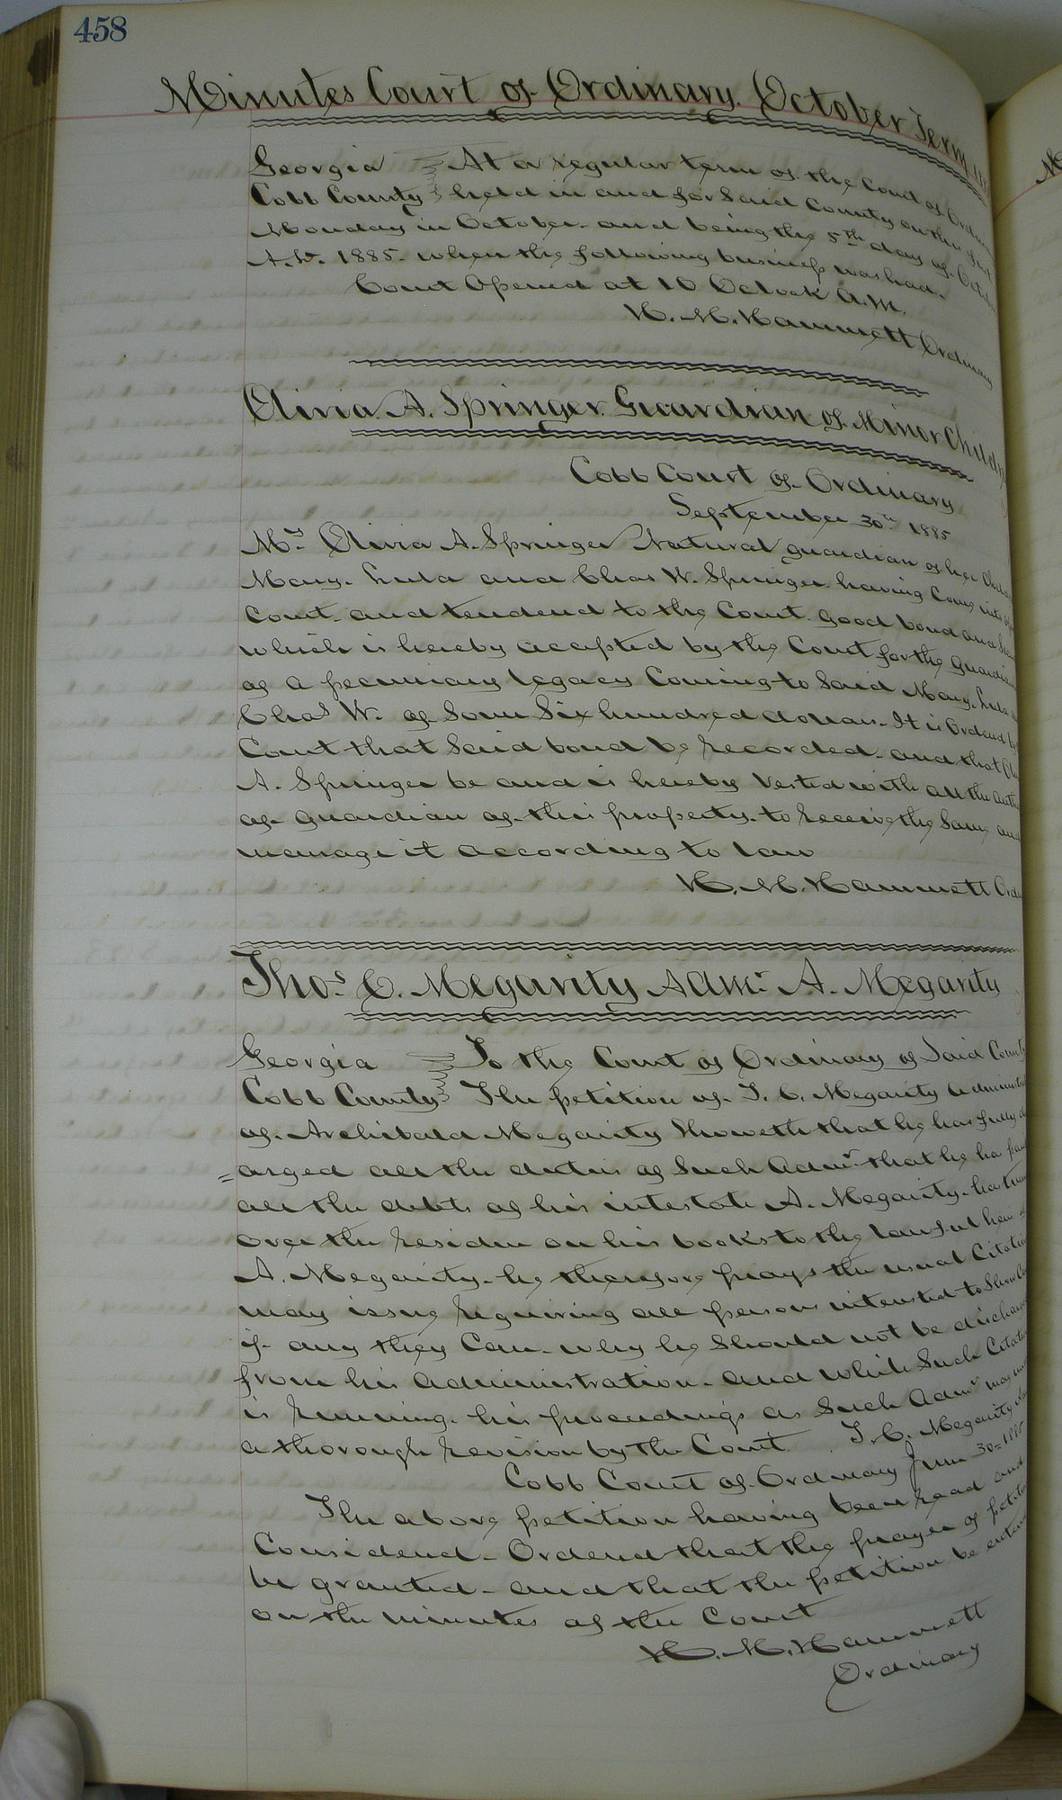 458
Minutes Court of Ordinary. October Term
Georgia At a regular term of the Court of
Cobb County held in and for Said County on the first
Monday in October. and being the 5th day of
A.D. 1885. when the following business was had.
Court Opened at 10 Oclock A.M.
H. M. Hammett Ordinary
Olivia A. Springer Guardian of Minor
Cobb Court of Ordinary
September 30th 1885
Mrs Olivia A. Springer Natural guardian of her
Mary. Lula and Chas W. Springer having Come into
Court. and tendered to the Court. good bond and
which is hereby accepted by the Court for the
of a pecuniary legacy Coming to Said Mary. Lula
Chas W. of Some Six hundred dollars. It is Ordered by
Court that Said bond be Recorded. and that
A. Springer be and is hereby Vested with all the
of guardian of this property. to Receive the Same and
manage it according to law
H. M. Hammett
Thos. C. Megarity Admr. A. Megarity
Georgia To the Court of Ordinary of Said County
Cobb County The petition of T. C. Megarity
of Archibald Megarity Showeth that he has fully
=arged all the duties of Such Admr. that he has paid
all the debts of his intestate A. Megarity. has
over the Residue on his books to the lawful heirs
A. Megarity. he therefore prays the usual Citation
may issue Requiring all persons interested to Show
if any they Can. why he Should not be
from his administration. and while Such Citation
is Running. his proceedings as Such Admr may
a thorough Revision by the Court. T. C. Megarity
Cobb Court of Ordinary June 30=
The above petition having been Read and
Considered. Ordered that the prayer of
be granted. and that the petition be
on the minutes of the Court
H. M. Hammett
Ordinary